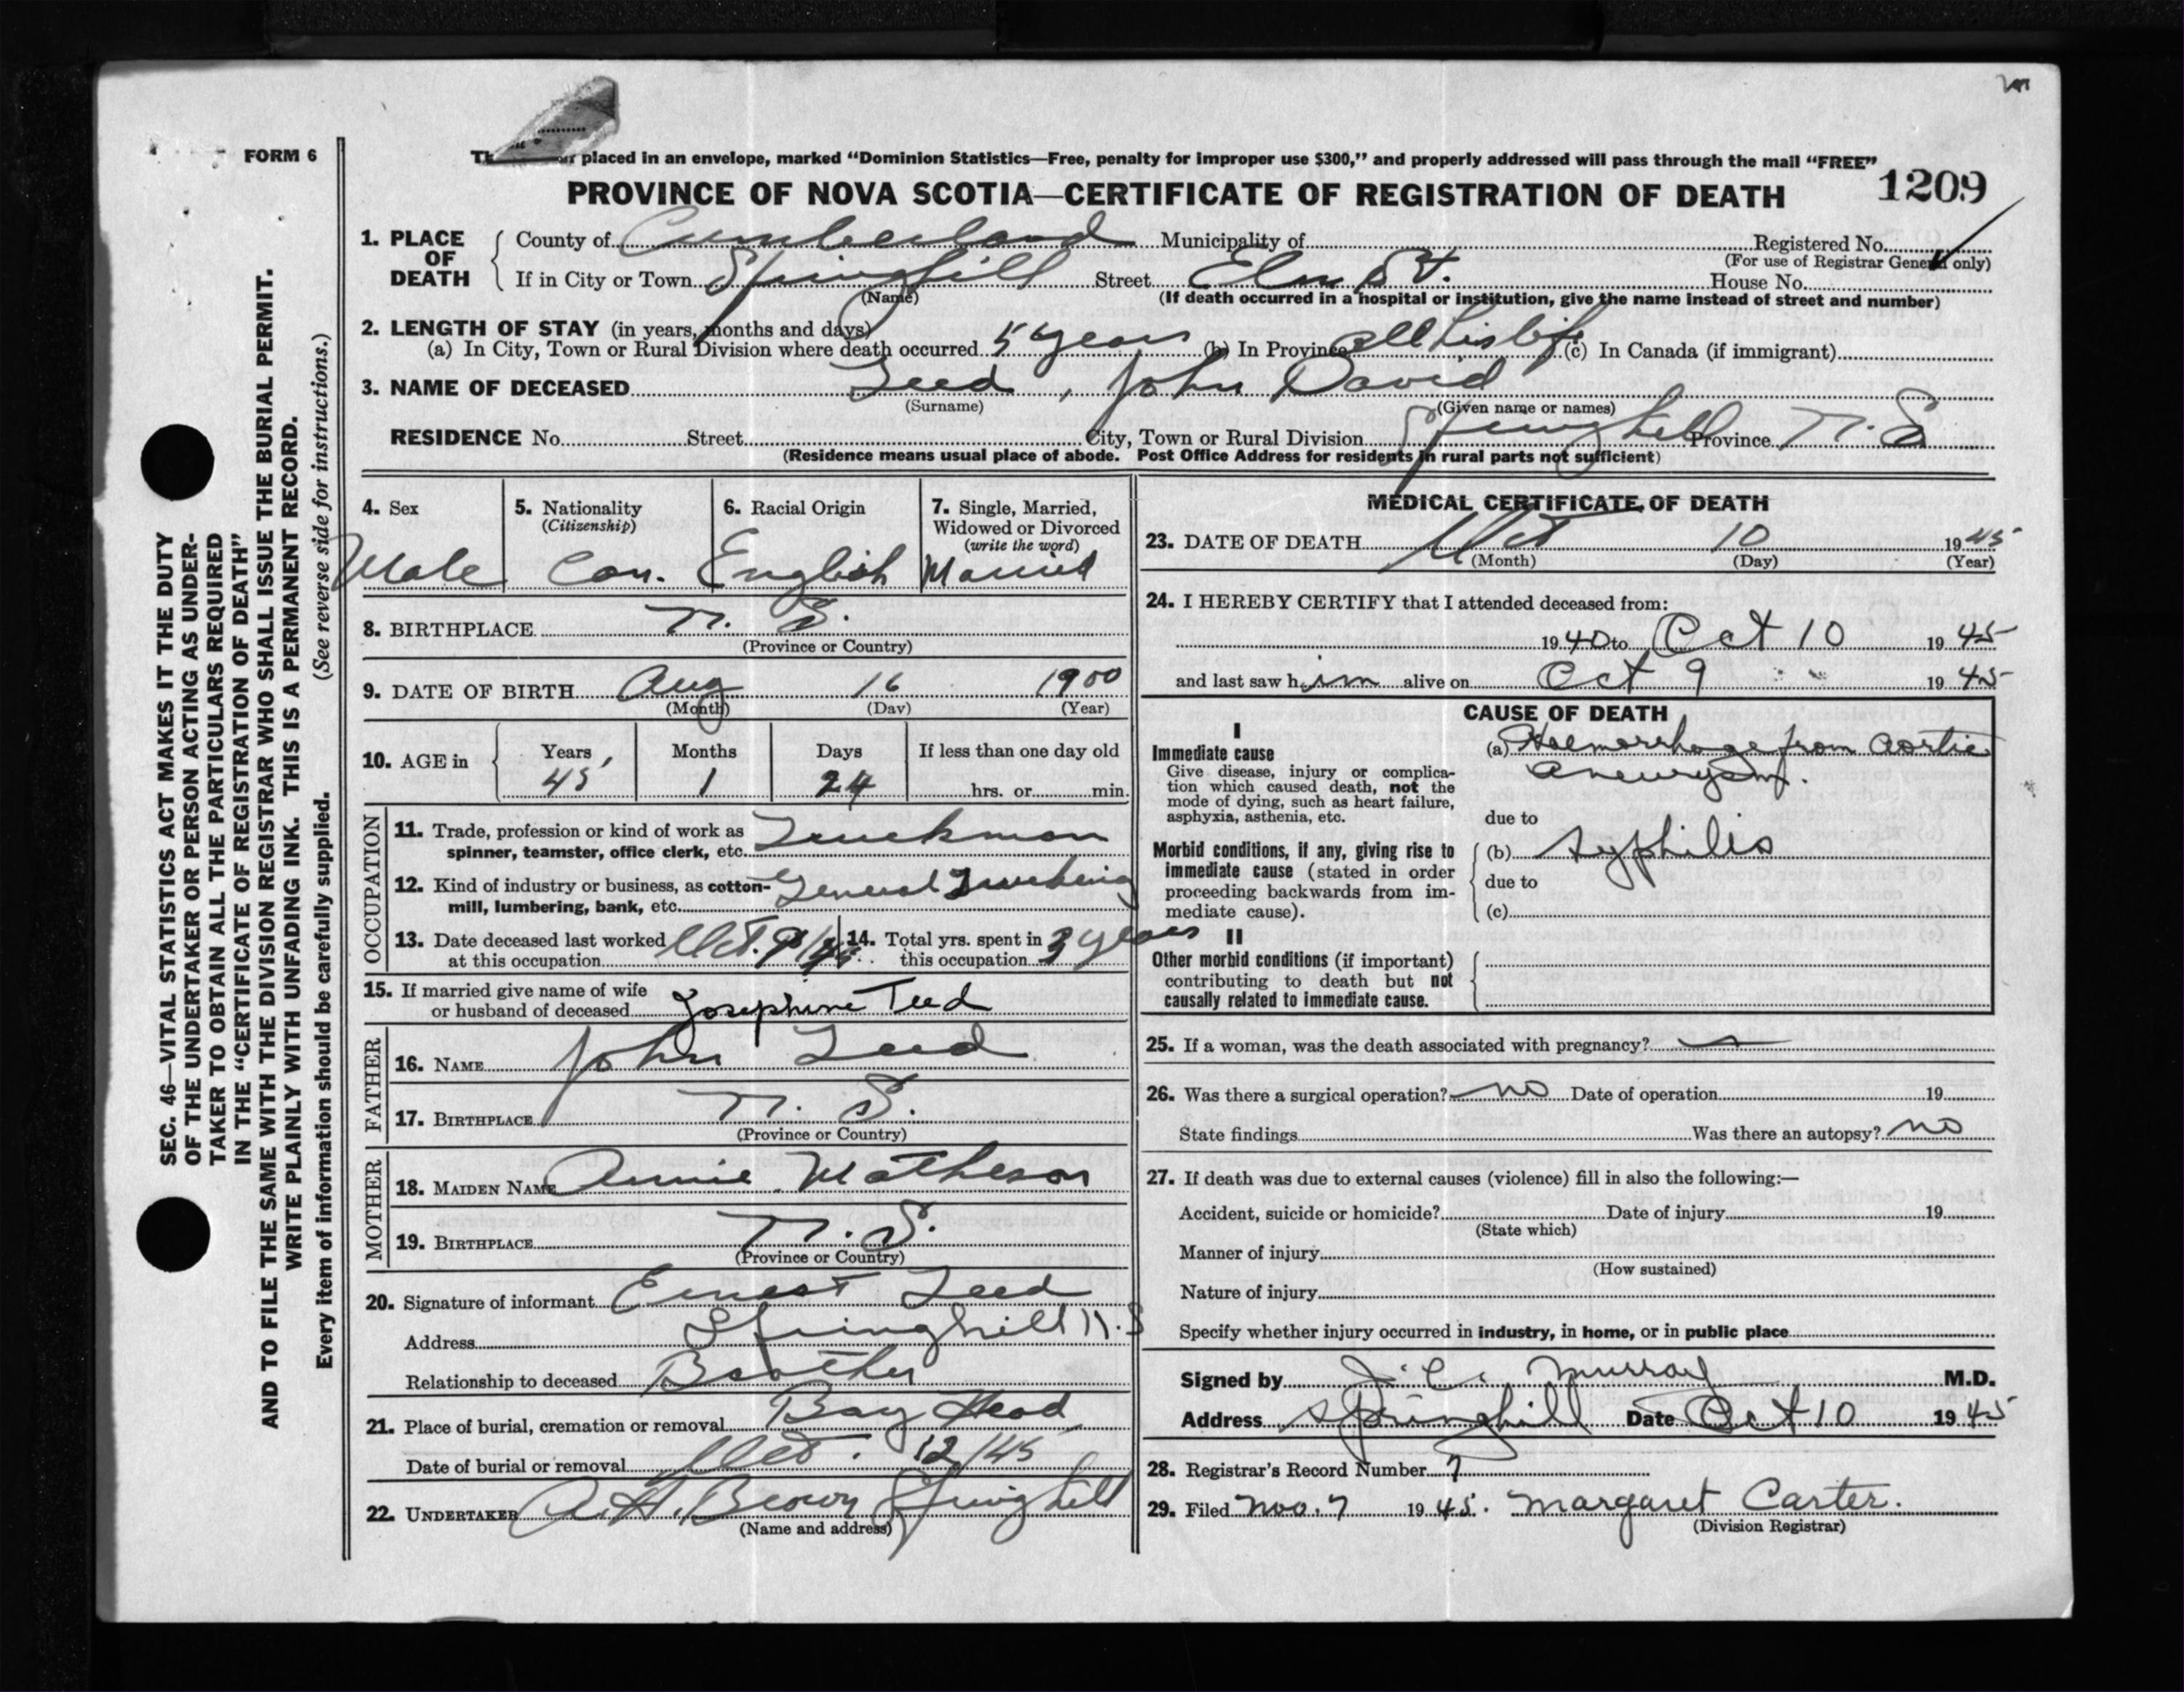 FORM 6
placed in an envelope, marked "Dominion Statistics—Free, penalty for improper use $300," and properly addressed will pass through the mail "FREE"
PROVINCE OF NOVA SCOTIA—CERTIFICATE OF REGISTRATION OF DEATH 1209
1. PLACE OF DEATH County of Cumberland Municipality of Registered No.
(For use of Registrar General only)
If in City or Town Springhill Street Elm St. House No.
(Name) (If death occurred in a hospital or institution, give the name instead of street and number)
2. LENGTH OF STAY (in years, months and days)
(a) In City, Town or Rural Division where death occurred 5 years (b) In Province all his life (c) In Canada (if immigrant)
3. NAME OF DECEASED Teed, John David
(Surname) (Given name or names)
RESIDENCE No. Street City, Town or Rural Division Springhill Province N.S
(Residence means usual place of abode. Post Office Address for residents in rural parts not sufficient)
4. Sex Male
5. Nationality (Citizenship) Can.
6. Racial Origin English
7. Single, Married, Widowed or Divorced (write the word) Married
8. BIRTHPLACE N. S.
(Province or Country)
9. DATE OF BIRTH Aug 16 1900
(Month) (Day) (Year)
10. AGE in Years Months Days If less than one day old
45 1 24 hrs. or min.
OCCUPATION
11. Trade, profession or kind of work as Truckman
spinner, teamster, office clerk, etc.
12. Kind of industry or business, as cotton- General Trucking
mill, lumbering, bank, etc.
13. Date deceased last worked at this occupation Oct. 9/45
14. Total yrs. spent in this occupation 3 years
15. If married give name of wife
or husband of deceased Josephine Teed
FATHER
16. NAME John Teed
17. BIRTHPLACE N. S.
(Province or Country)
MOTHER
18. MAIDEN NAME Annie Matheson
19. BIRTHPLACE N. S.
(Province or Country)
20. Signature of informant Ernest Teed
Address Springhill N.S
Relationship to deceased Brother
21. Place of burial, cremation or removal Bay Head
Date of burial or removal Oct. 12/45
22. UNDERTAKER A.H. Brown Springhill
(Name and address)
MEDICAL CERTIFICATE OF DEATH
23. DATE OF DEATH Oct 10 1945
(Month) (Day) (Year)
24. I HEREBY CERTIFY that I attended deceased from:
1940 to Oct 10 1945
and last saw him alive on Oct 9 1945
CAUSE OF DEATH
I
Immediate cause
Give disease, injury or complica-
tion which caused death, not the
mode of dying, such as heart failure,
asphyxia, asthenia, etc.
(a) Haemorrhage from aortic
aneurysm.
due to
Morbid conditions, if any, giving rise to
immediate cause (stated in order
proceeding backwards from im-
mediate cause).
(b) Syphilis
due to
(c)
II
Other morbid conditions (if important)
contributing to death but not
causally related to immediate cause.
25. If a woman, was the death associated with pregnancy?
26. Was there a surgical operation? no Date of operation 19
State findings Was there an autopsy? no
27. If death was due to external causes (violence) fill in also the following:—
Accident, suicide or homicide? Date of injury 19
(State which)
Manner of injury
(How sustained)
Nature of injury
Specify whether injury occurred in industry, in home, or in public place
Signed by J. C. Murray M.D.
Address Springhill Date Oct 10 1945
28. Registrar's Record Number 7
29. Filed Nov. 7 1945. Margaret Carter.
(Division Registrar)
SEC. 46—VITAL STATISTICS ACT MAKES IT THE DUTY
OF THE UNDERTAKER OR PERSON ACTING AS UNDER-
TAKER TO OBTAIN ALL THE PARTICULARS REQUIRED
IN THE "CERTIFICATE OF REGISTRATION OF DEATH"
AND TO FILE THE SAME WITH THE DIVISION REGISTRAR WHO SHALL ISSUE THE BURIAL PERMIT.
WRITE PLAINLY WITH UNFADING INK. THIS IS A PERMANENT RECORD.
Every item of information should be carefully supplied. (See reverse side for instructions.)